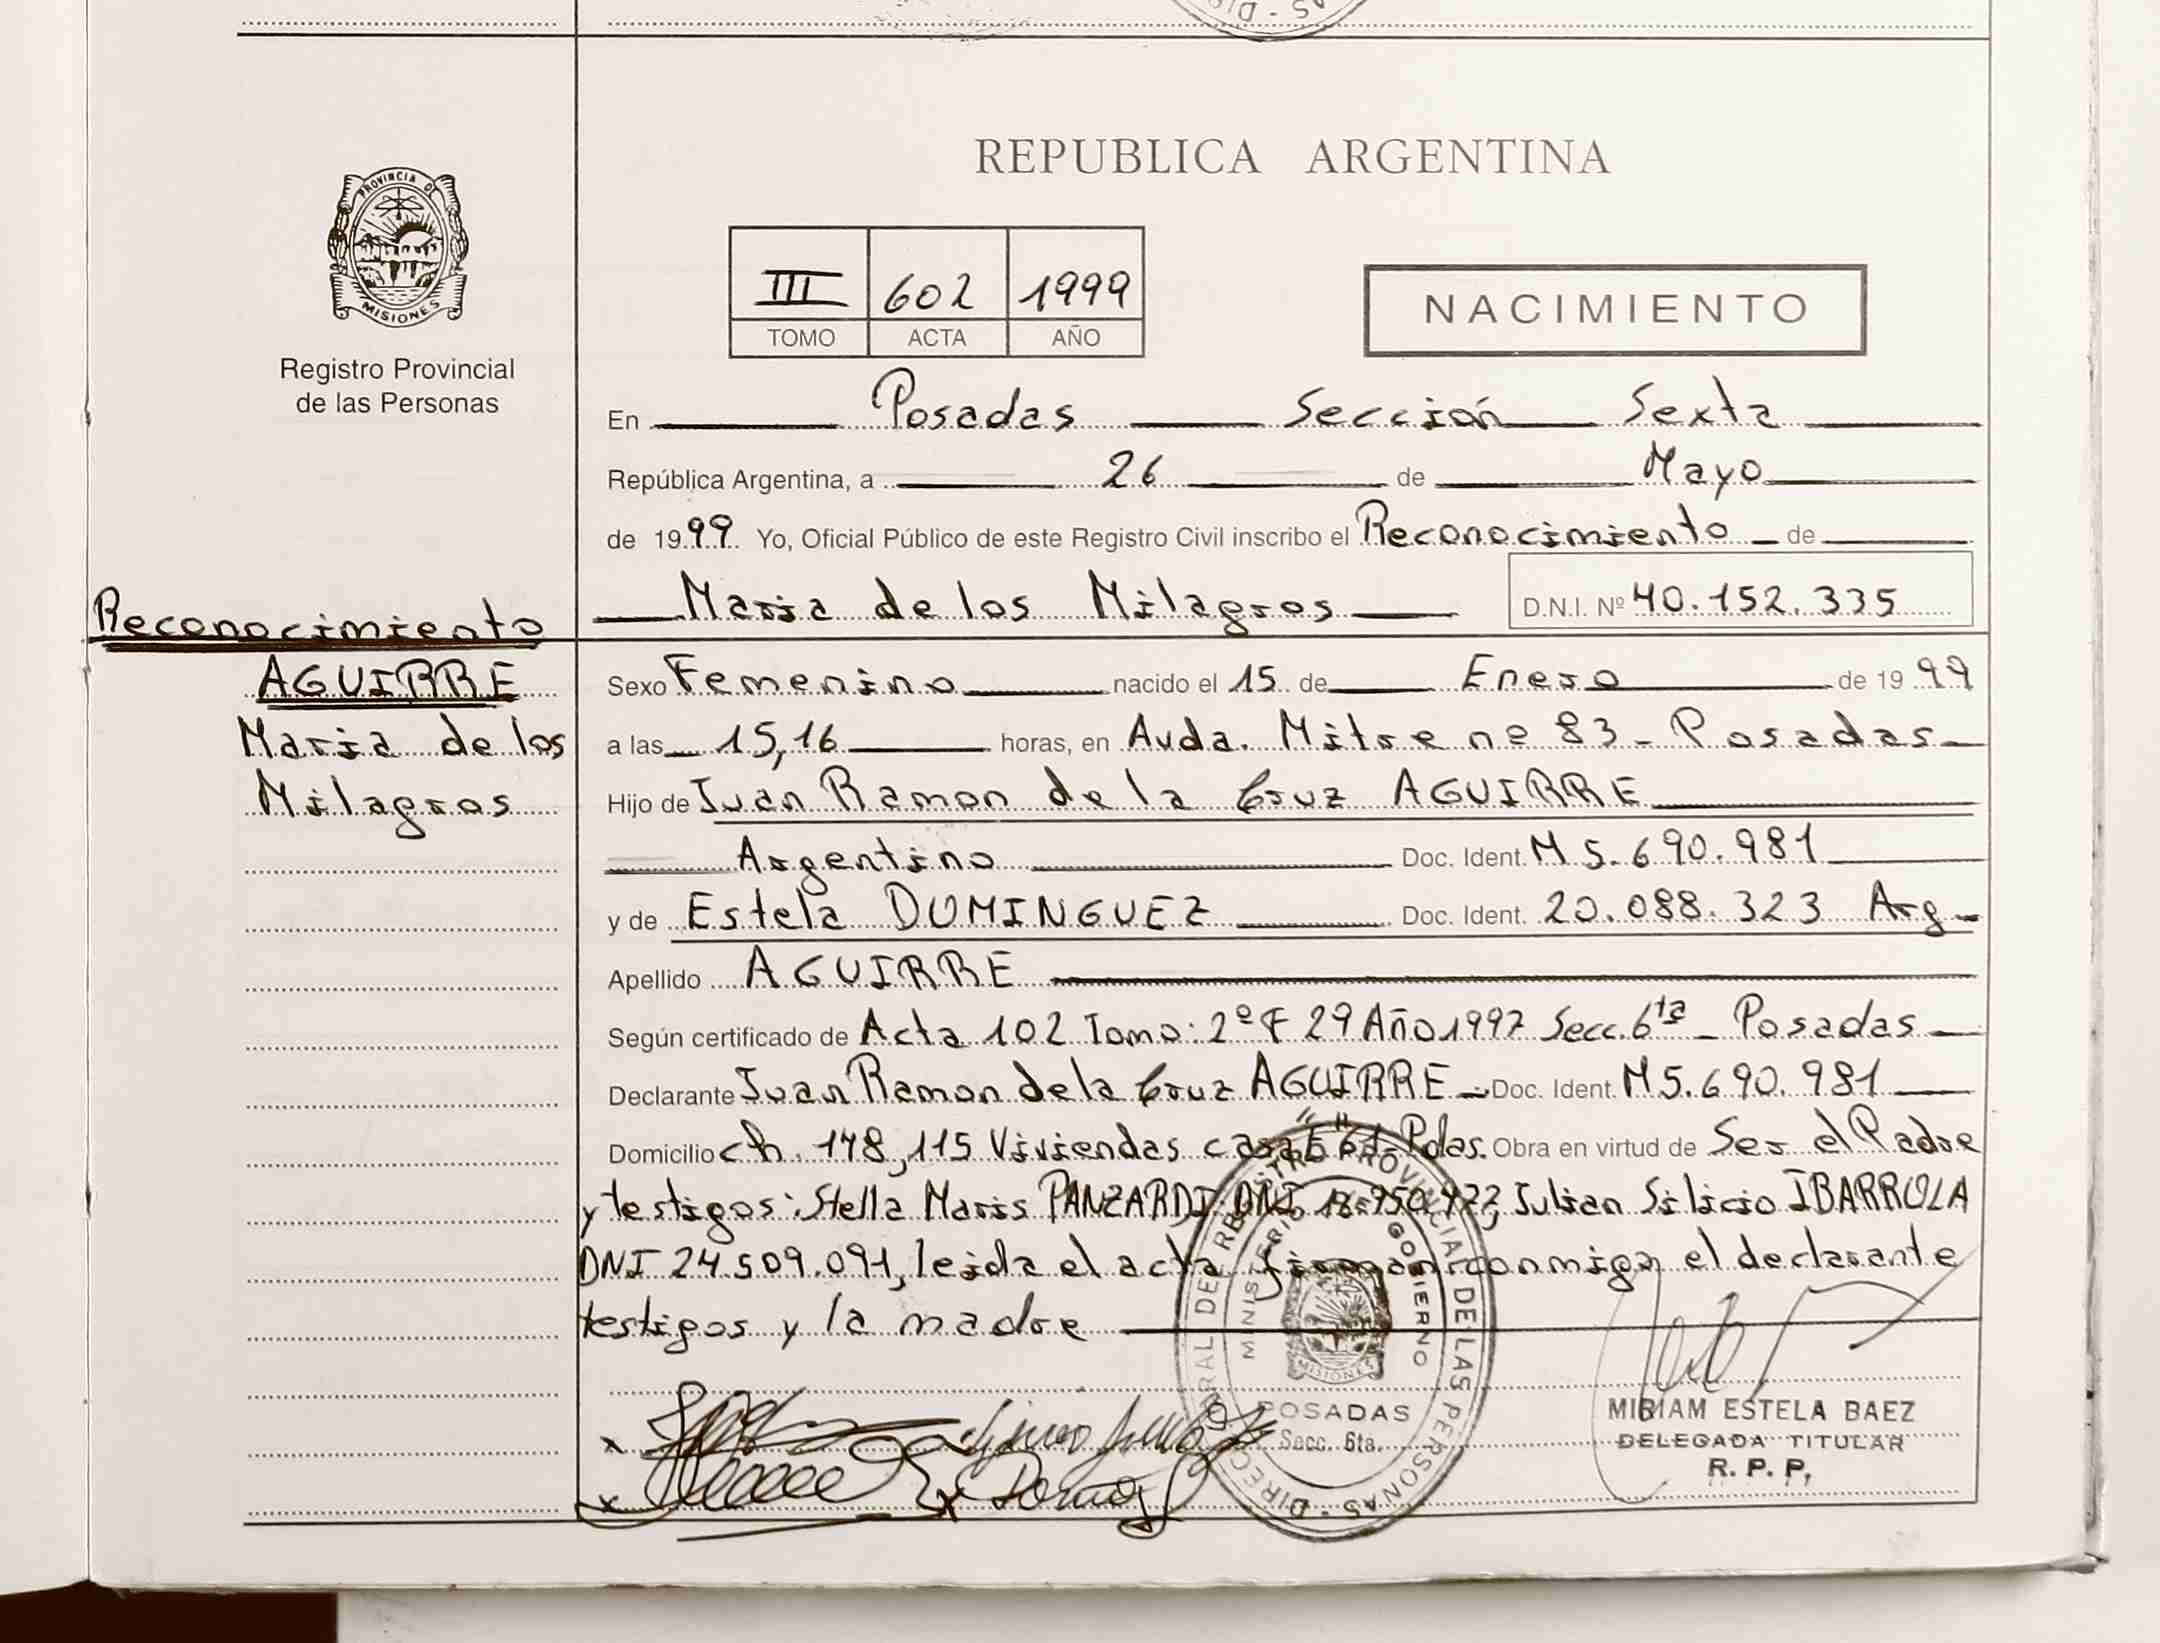 REPUBLICA ARGENTINA
PROVINCIA DE
MISIONES
Registro Provincial
de las Personas
III 602 1999
TOMO ACTA AÑO
NACIMIENTO
En Posadas Sección Sexta
República Argentina, a 26 de Mayo
de 1999 Yo, Oficial Público de este Registro Civil inscribo el Reconocimiento de
Maria de los Milagros D.N.I. Nº 40.152.335
Reconocimiento
AGUIRRE
Maria de los
Milagros
Sexo Femenino nacido el 15 de Enero de 1999
a las 15,16 horas, en Avda. Mitre nº 83 - Posadas
Hijo de Juan Ramon de la Cruz AGUIRRE
Argentino Doc. Ident. M 5.690.981
y de Estela DOMINGUEZ Doc. Ident. 20.088.323 Arg
Apellido AGUIRRE
Según certificado de Acta 102 Tomo: 2º F 29 Año 1997 Secc. 6ta - Posadas
Declarante Juan Ramon de la Cruz AGUIRRE Doc. Ident. M 5.690.981
Domicilio ch. 148, 115 Viviendas casa "E" 61 - Pdas. Obra en virtud de Ser el Padre
y testigos: Stella Maris PANZARDI DNI Julian Silicio IBARROLA
DNI 24.509.091, leida el acta firman conmigo el declarante
testigos y la madre
DIRECC RAL DEL REGISTRO PROVINCIAL DE LAS PERSONAS
MINISTERIO GOBIERNO
MISIONES
POSADAS
Secc. 6ta.
MIRIAM ESTELA BAEZ
DELEGADA TITULAR
R. P. P.